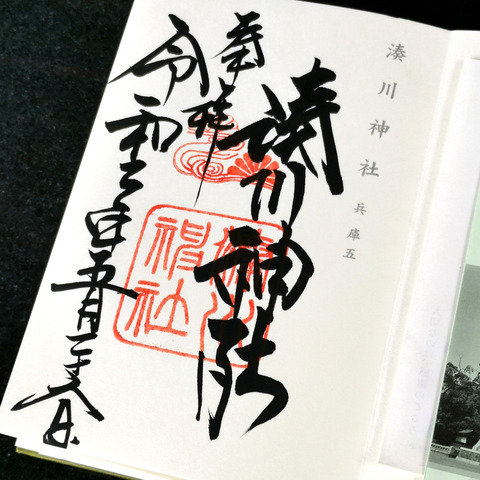 湊川神社 兵庫五
湊川神社
奉拝
令和二年五月二十八日
湊川神社